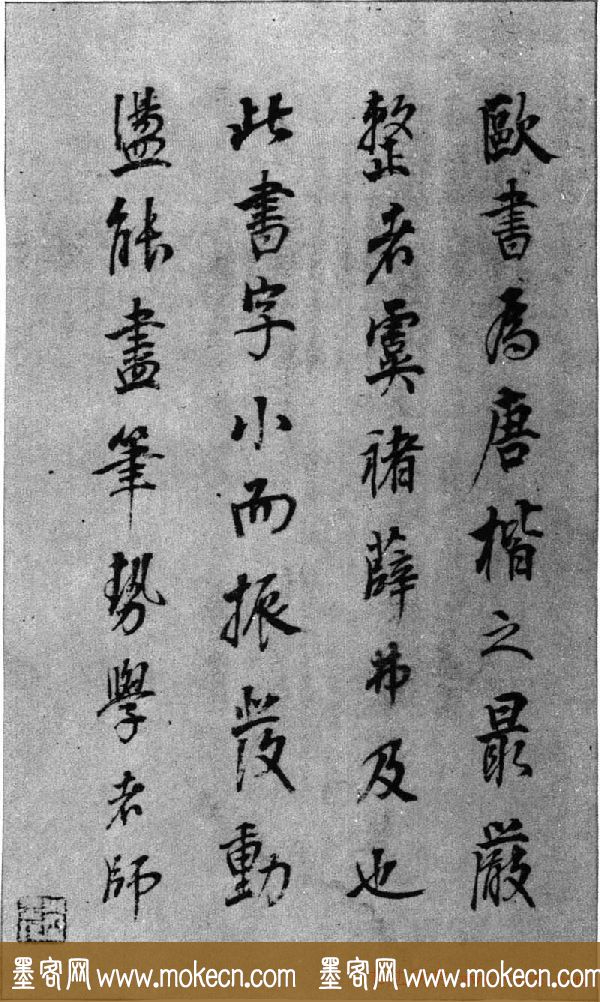 歐書為唐楷之最嚴
整者虞褚薛弗及也
此書字小而振發動
盪能盡筆勢學者師
墨客网 www.mokecn.com 墨客网 www.mokecn.com